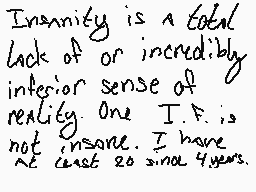 Insanity is a total
lack of or incredibly
inferior sense of
reality. One I.F. is
not insane. I have
at least 20 since 4 years.